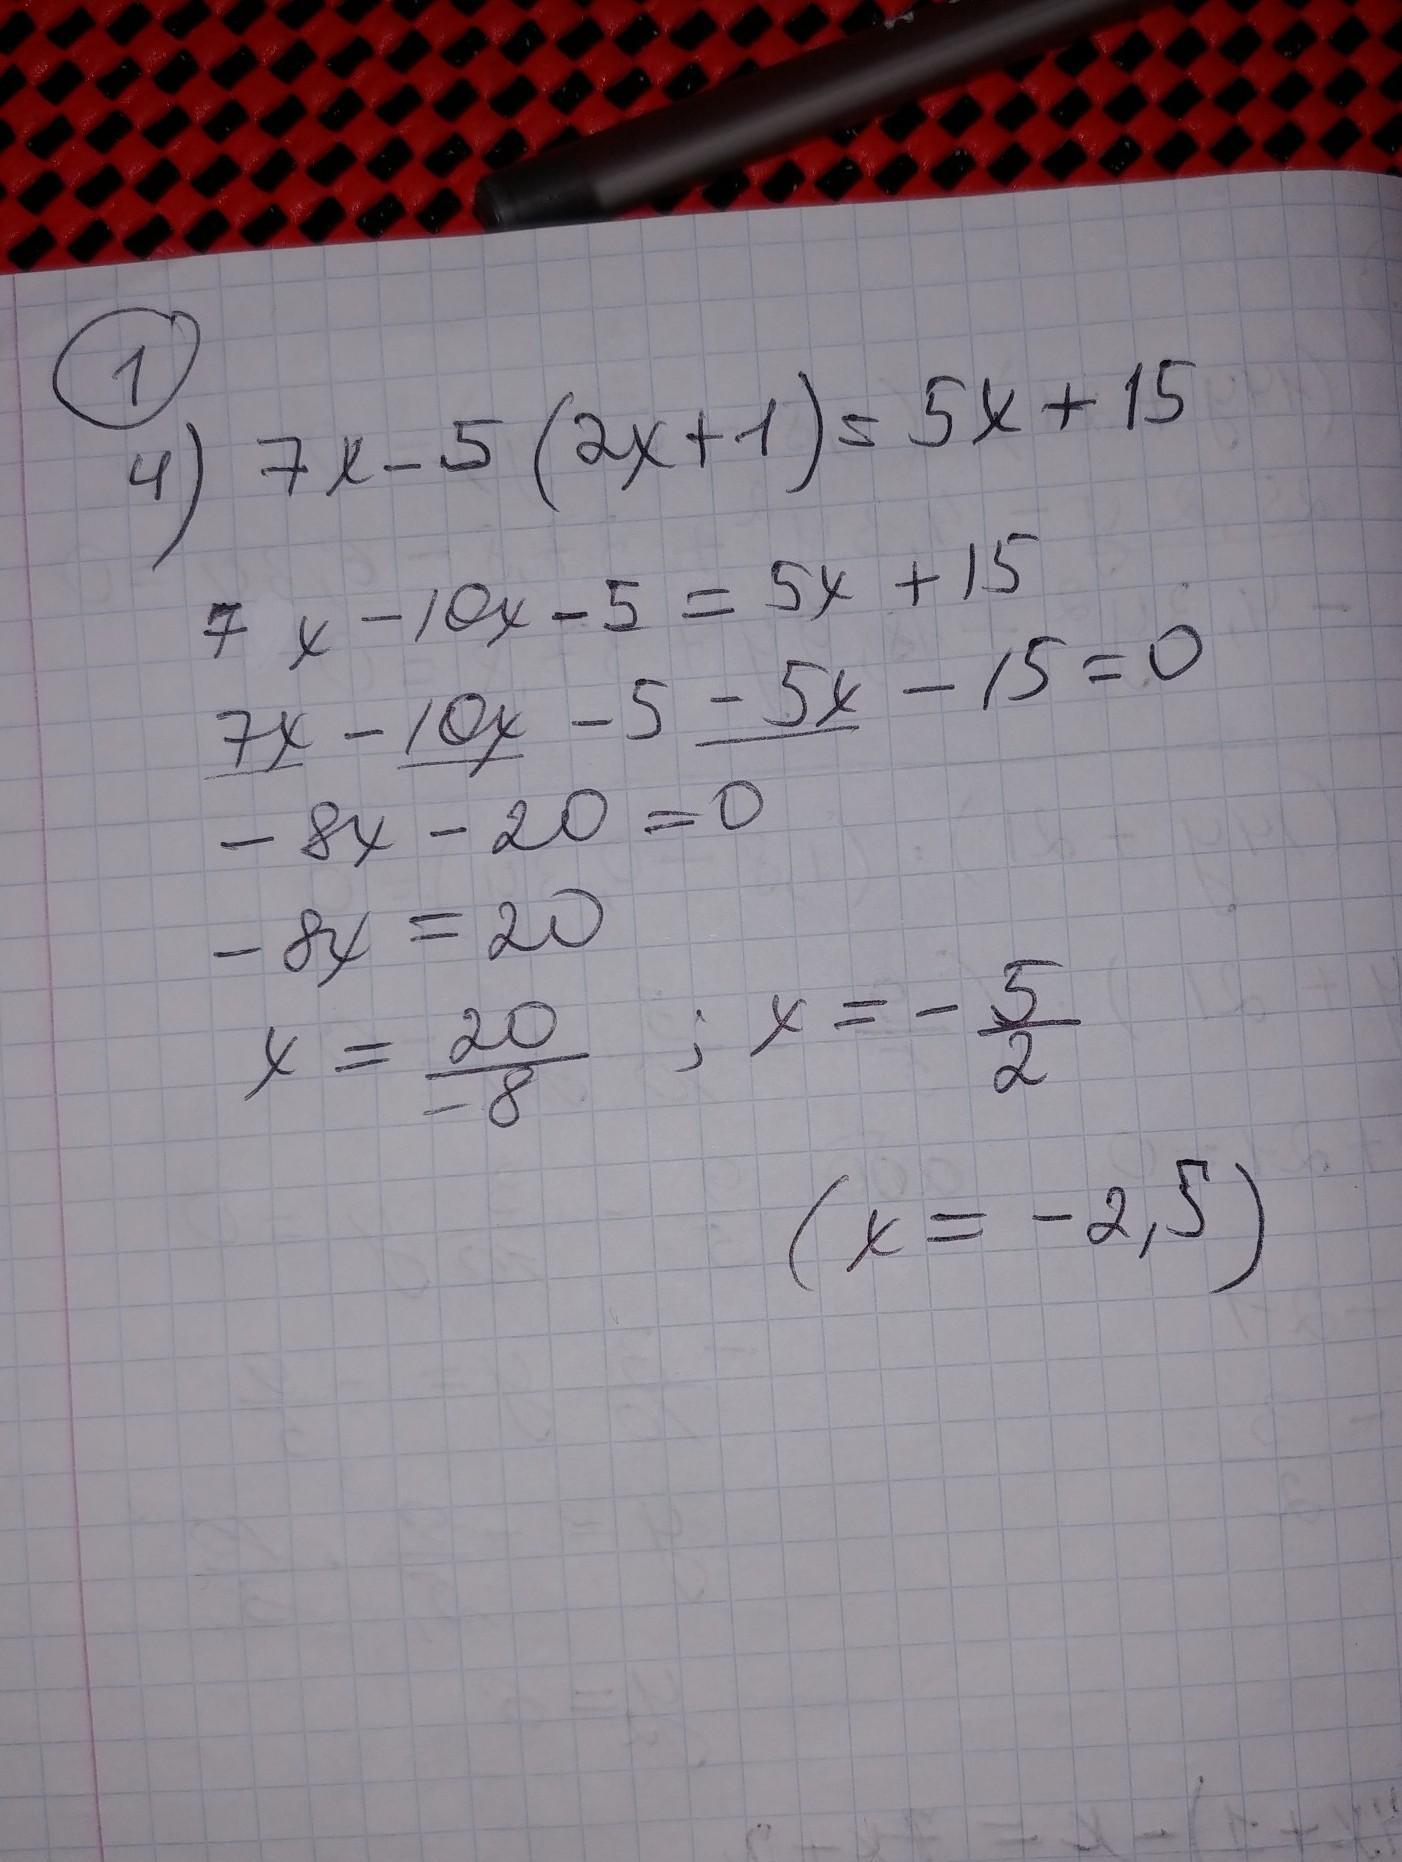 1
4) 7x - 5 (2x + 1) = 5x + 15
7x - 10x - 5 = 5x + 15
7x - 10x - 5 - 5x - 15 = 0
- 8x - 20 = 0
- 8x = 20
x = 20/-8 ; x = - 5/2
(x = -2,5)